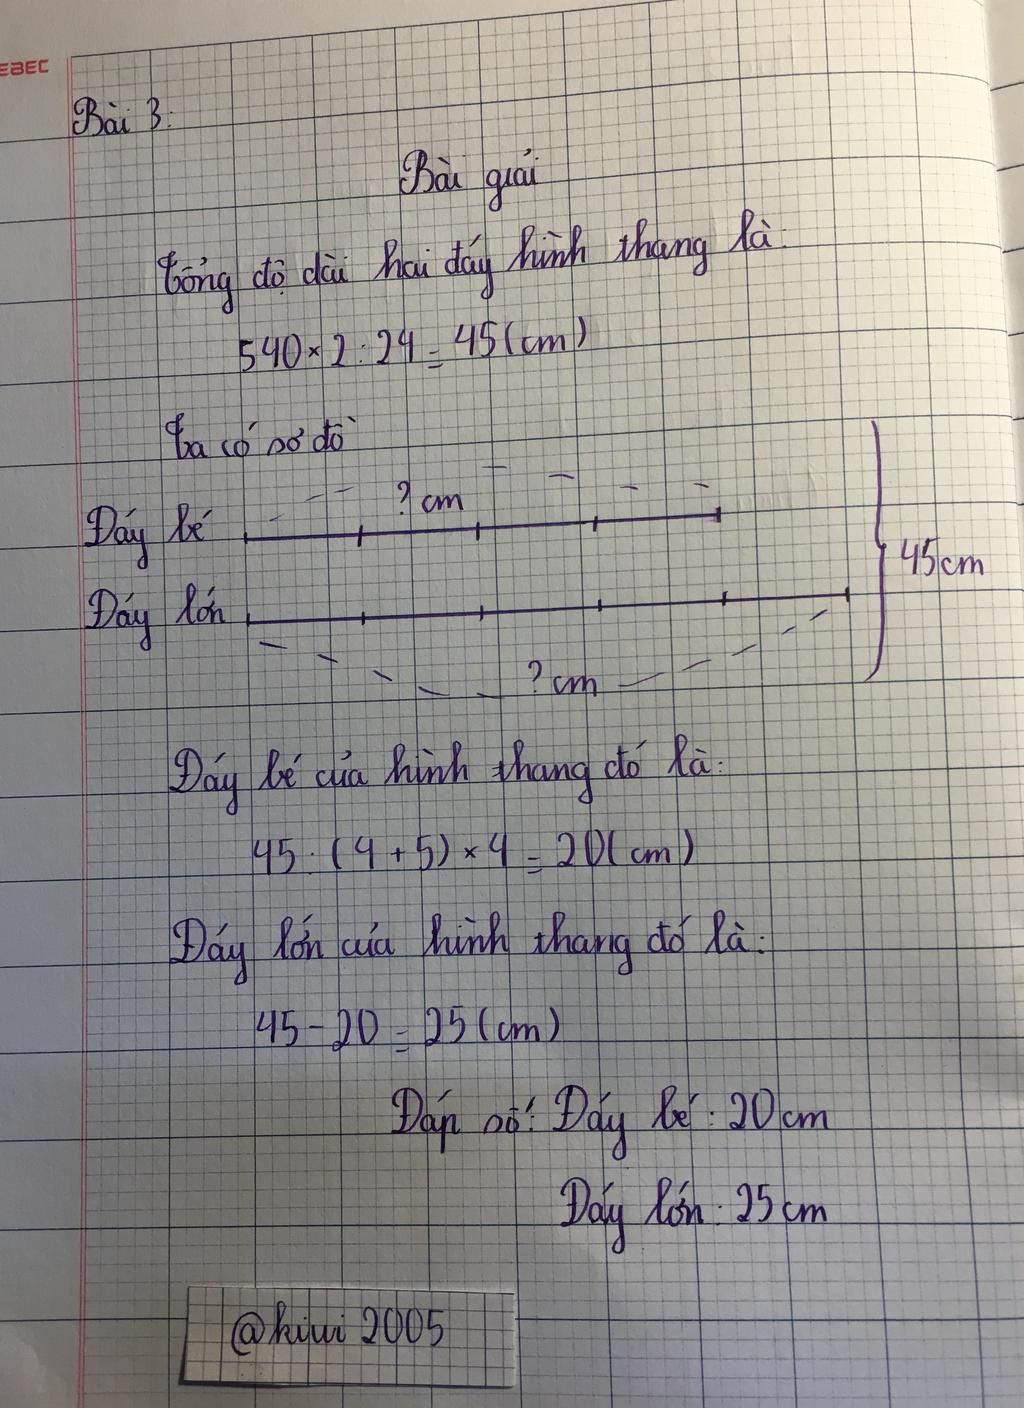 EBEC
Bài 3:
Bài giải
Tổng độ dài hai đáy hình thang là:
540 × 2 : 24 = 45 (cm)
Ta có sơ đồ
? cm
Đáy bé
45 cm
Đáy lớn
? cm
Đáy bé của hình thang đó là:
45 : (4 + 5) × 4 = 20 (cm)
Đáy lớn của hình thang đó là:
45 - 20 = 25 (cm)
Đáp số: Đáy bé: 20 cm
Đáy lớn: 25 cm
@kiwi 2005